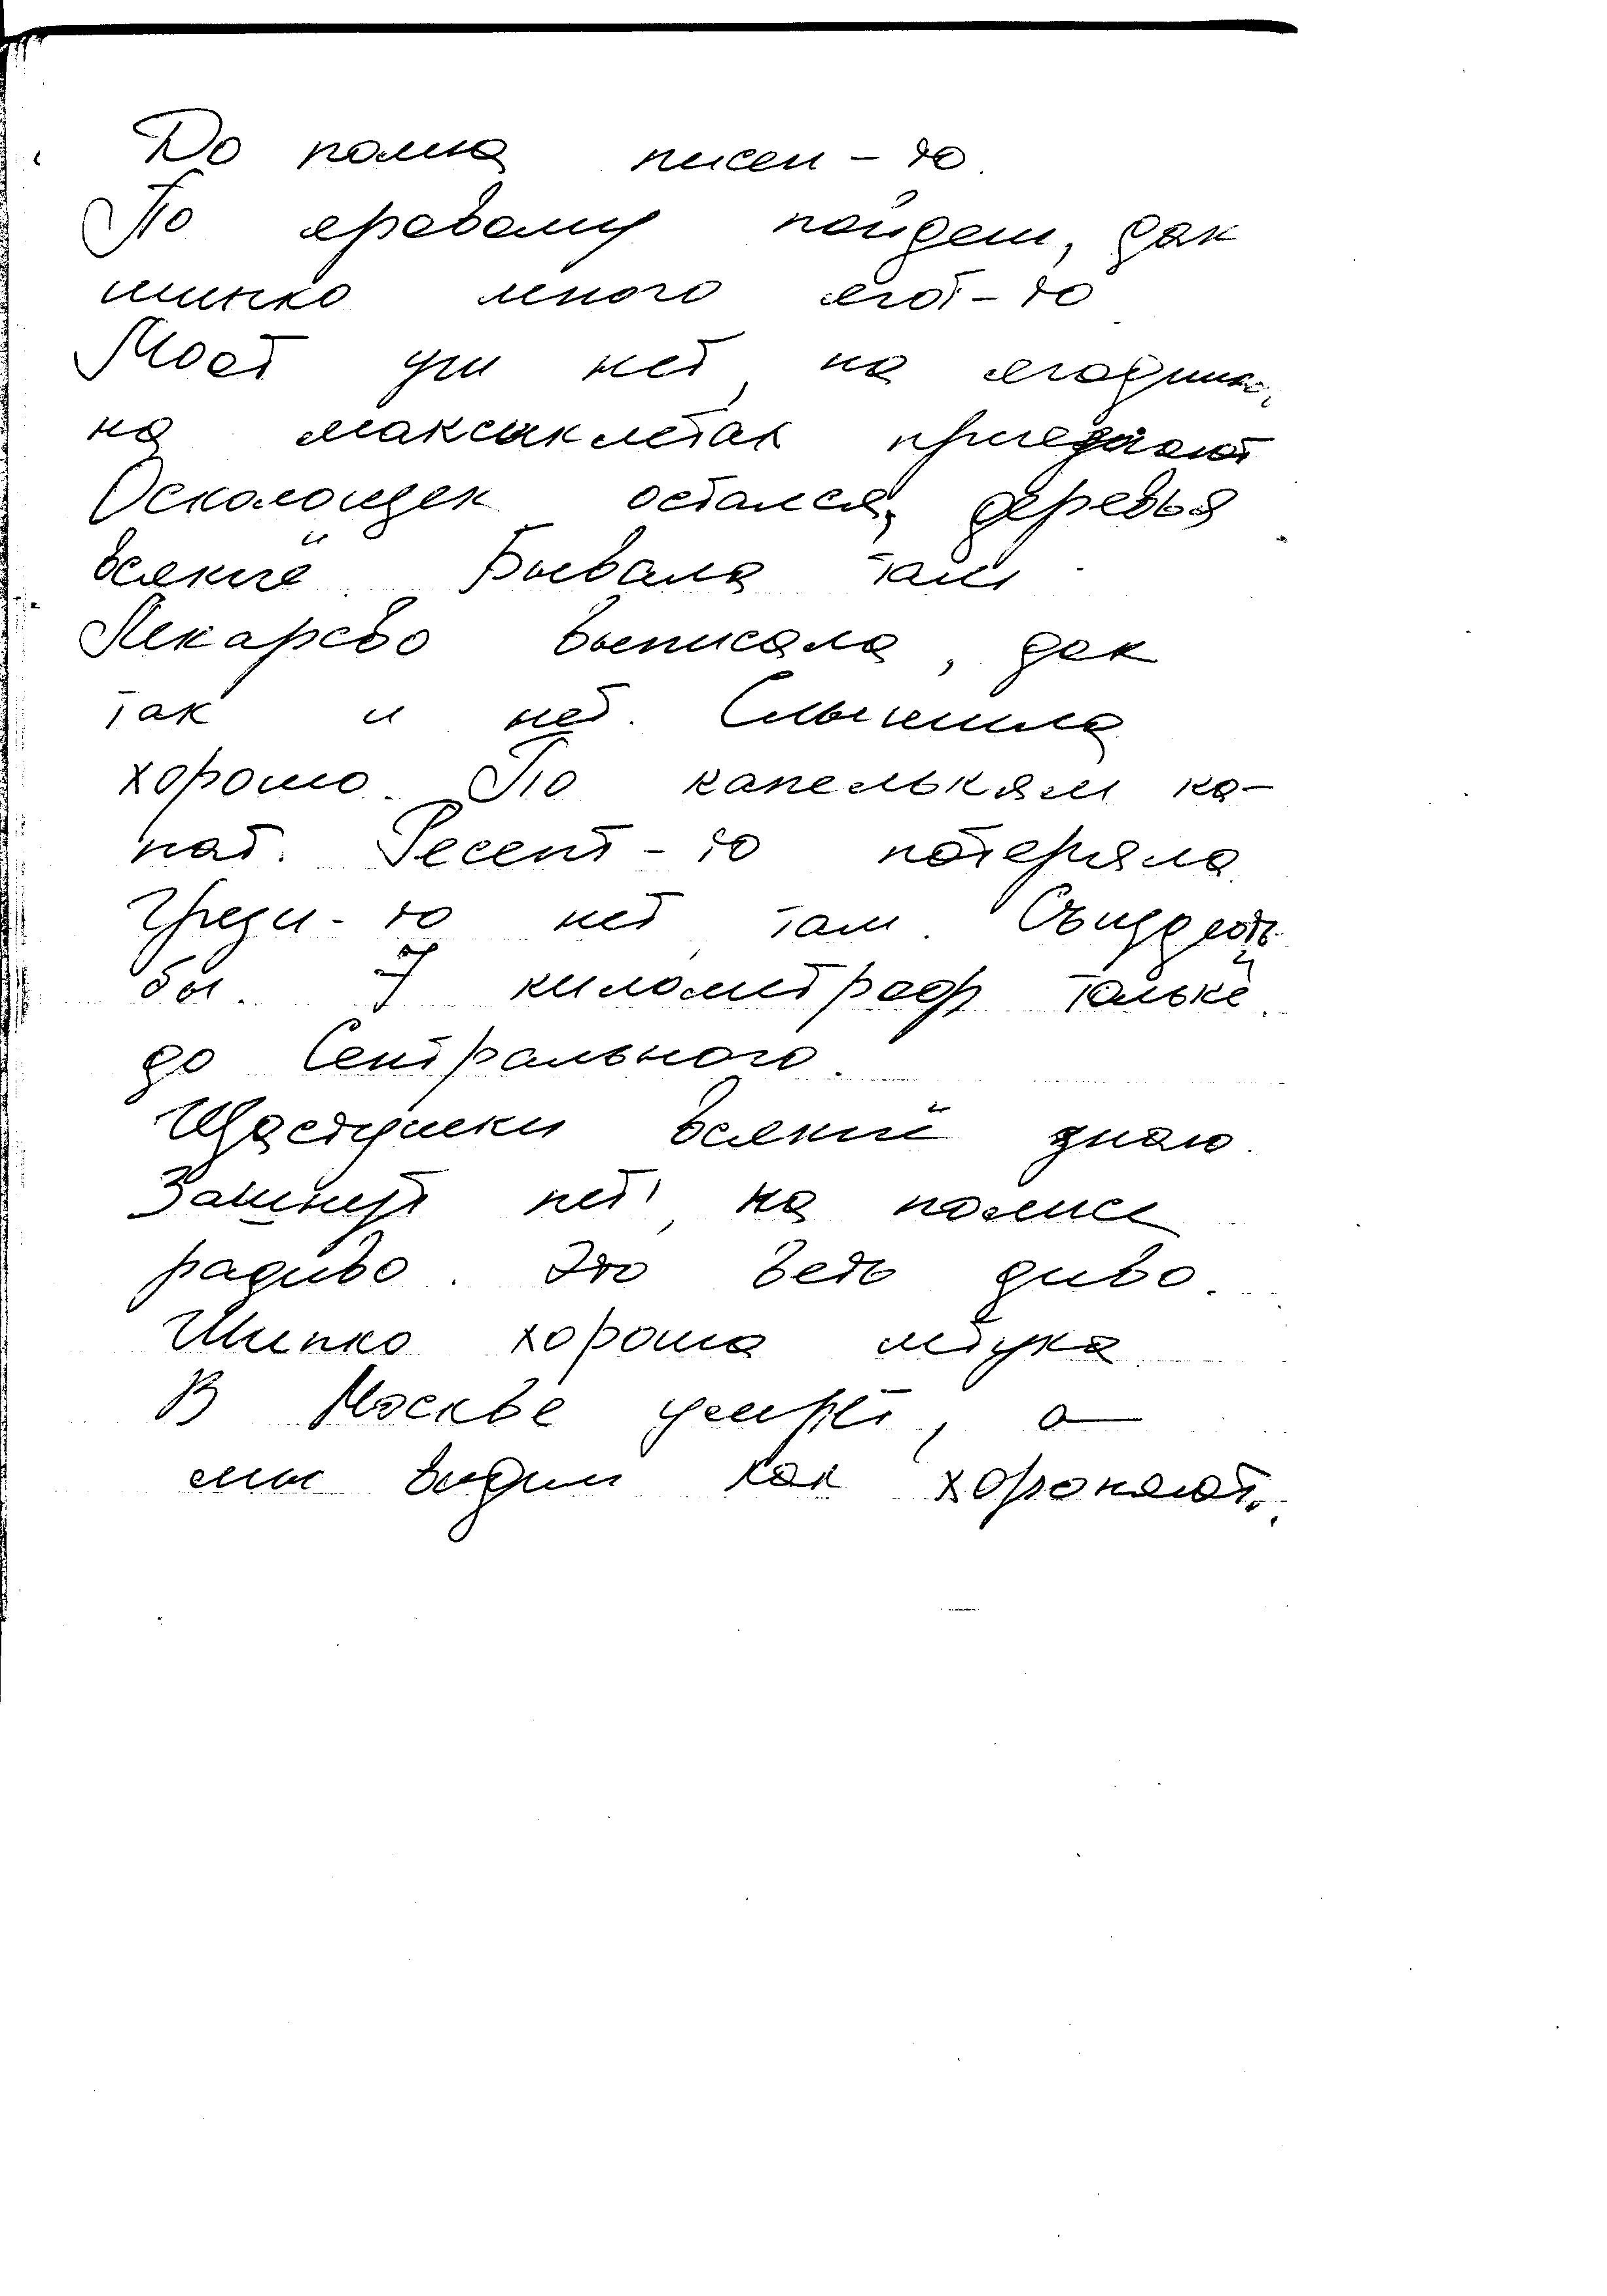 До полна писем-то.
По яровому пойдеш, дак
шипко много ягот-то.
Моєт уш нет, на
на максиклетах приезжают
Осколоцек остался, деревья
всякиё. Бывала там
Лекарсво выписала, дак
так и нет. Слышила
хорошо. По капелькям ка-
пат. Ресепт-то потеряла
Грези-то нет там. Съездеть
бы. 7 километроф толькё
до Сентрального.
Щастушки всякиё знаю.
Зашнут петь, на полисе
радиво. Это ветъ диво.
Шипко хороша штука
В Москве умрёт, а
мы видим как хоронают.